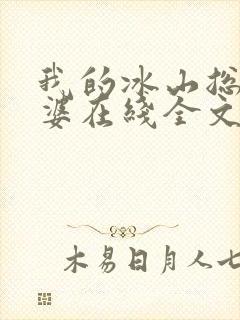 我的冰山总
婆在线全文
木易日月人七